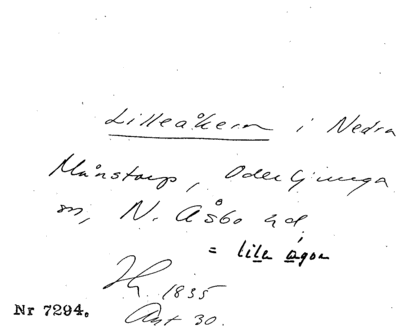 Lilleåkern i Nedra
Månstorp, Oderljunga
sn, N. Åsbo hd.
= lila ågoɴ
1835
Akt 30.
Nr 7294.